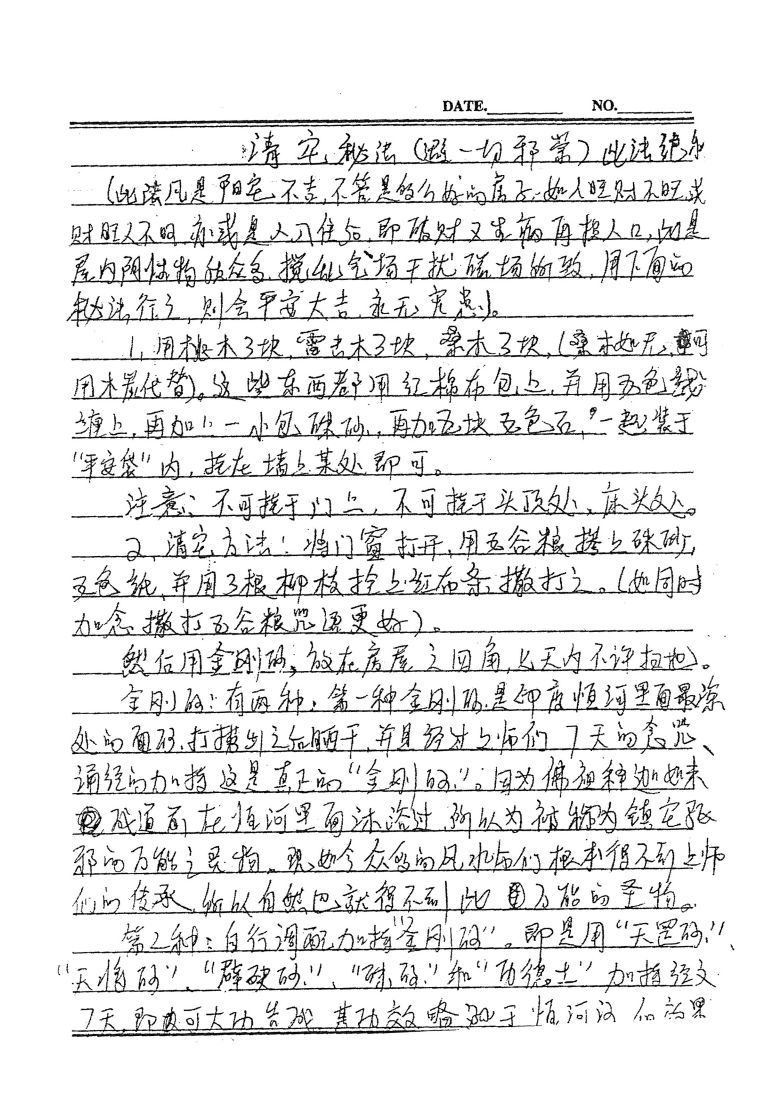 DATE. NO.
清宅秘法（避一切邪祟）此法绝
（此法凡是阳宅不吉，不管是多么好的房子，如人旺财不旺或
财旺人不旺，亦或是人入住后，即破财又生病再损人口，则是
屋内阴性物质众多，搅乱气场干扰磁场所致，用下面的
秘法行之，则会平安大吉，永无灾患）。
1，用桃木3块，雷击木3块，桑木3块，（桑木如无，可
用木炭代替）。这些东西都用红棉布包上，并用五色线
缠上，再加上一小包硃砂，再加五块五色石，一起装于
“平安袋”内，挂在墙上某处即可。
注意：不可挂于门上，不可挂于头顶处，床头处。
2，清宅方法：将门窗打开，用五谷粮拌上硃砂，
五色纸，并用3根柳枝拴上红布条撒打之。（如同时
加念撒打五谷粮咒语更好）。
然后用金刚砂，放在房屋之四角，七天内不许扫地）。
金刚砂：有两种：第一种金刚砂是印度恒河里面最深
处的面砂，打捞出之后晒干，并且经过上师们7天的念咒、
诵经的加持这是真正的“金刚砂”。因为佛祖释迦如来
成道前在恒河里面沐浴过，所以为被称为镇宅驱
邪的万能之灵物。现如今众多的风水师们根本得不到上师
们的传承，所以自然也就得不到此万能的圣物。
第2种：自行调配加持“金刚砂”。即是用“天罡砂”、
“天将砂”、“辟砂”、“硃砂”和“功德土”加持经文
7天，即可大功告成 其功效略逊于恒河沙 但效果